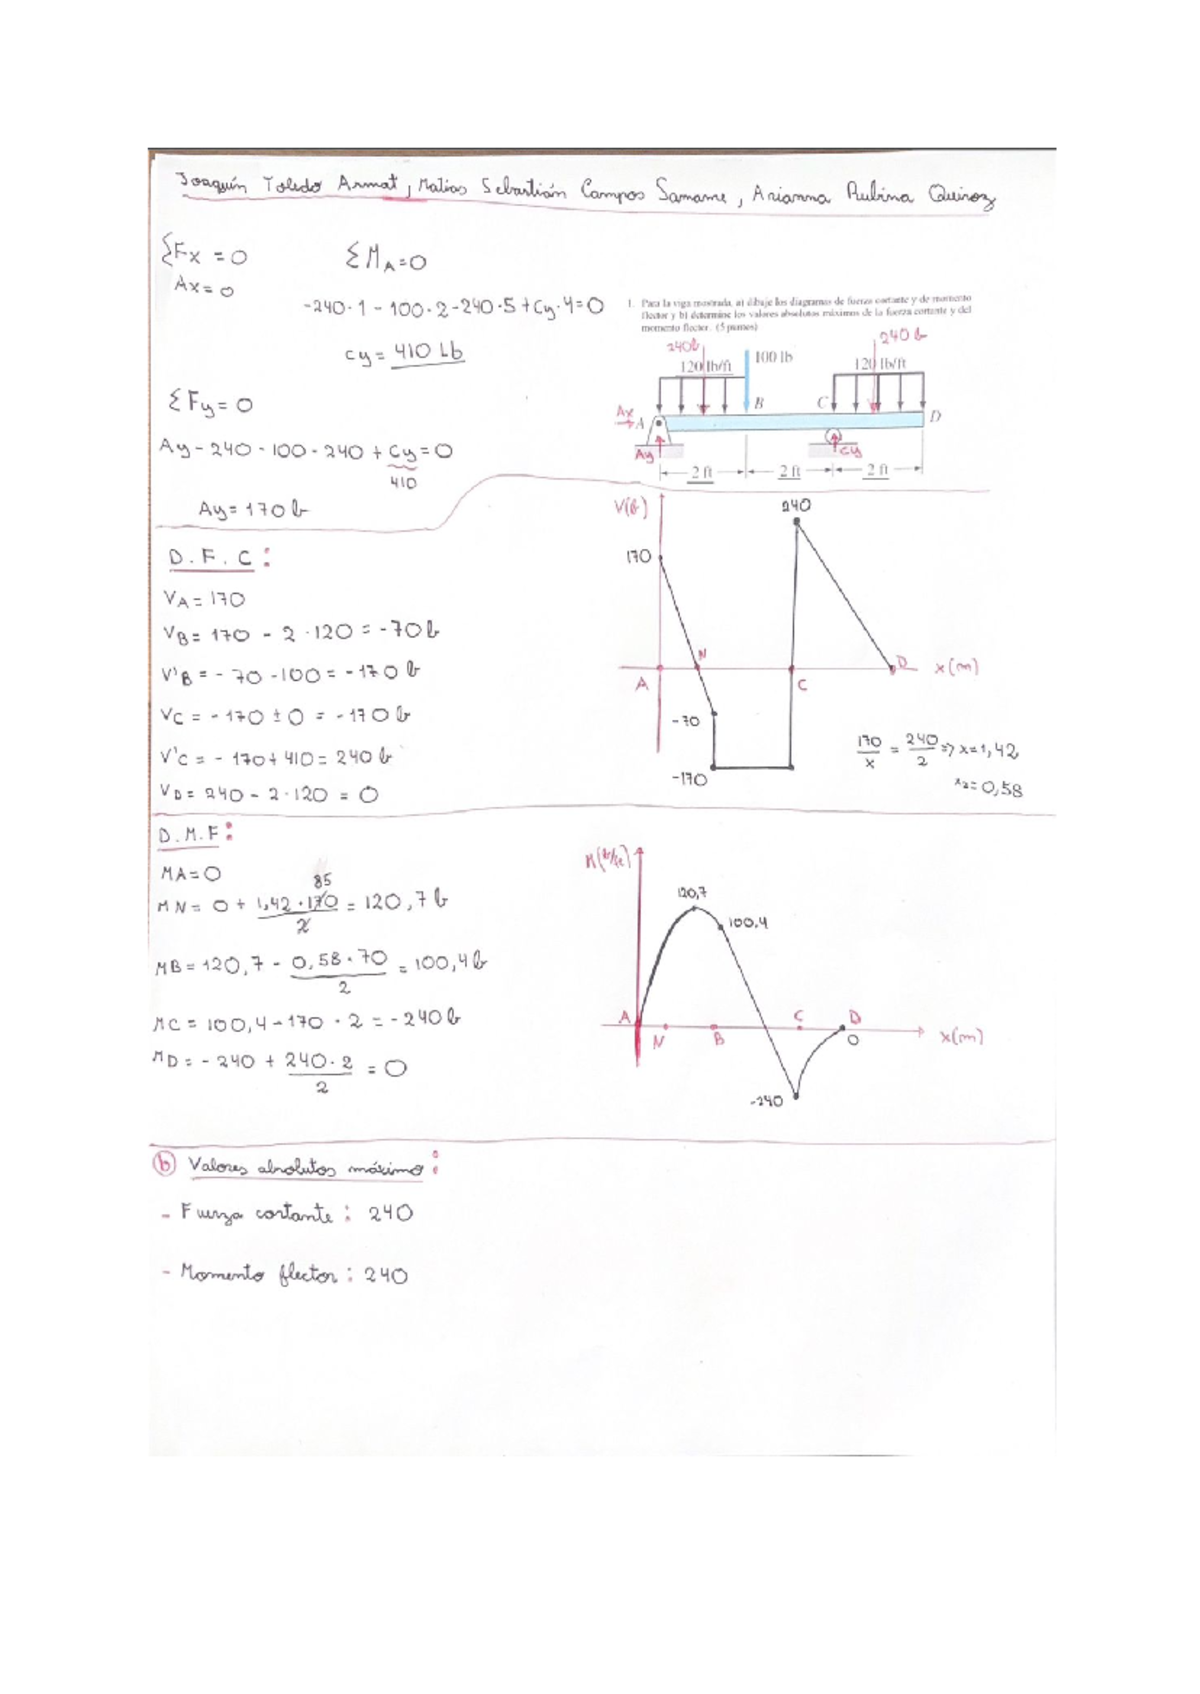 Joaquín Toledo Armat, Matias Sebastián Campos Samame, Arianna Rubina Queiroz
ΣFx = 0
Ax = 0
ΣMA = 0
-240·1 - 100·2 - 240·5 + Cy·4 = 0
Cy = 410 Lb
ΣFy = 0
Ay - 240 - 100 - 240 + Cy = 0
410
Ay = 170 lb
1. Para la viga mostrada, a) dibuje los diagramas de fuerza cortante y de momento
flector y b) determine los valores absolutos máximos de la fuerza cortante y del
momento flector. (5 puntos)
240lb
240 lb
120 lb/ft
100 lb
120 lb/ft
Ax
A
B
C
D
Ay
Cy
2 ft
2 ft
2 ft
D.F.C:
VA = 170
VB = 170 - 2·120 = -70 lb
V'B = -70 - 100 = -170 lb
VC = -170 ± 0 = -170 lb
V'C = -170 + 410 = 240 lb
VD = 240 - 2·120 = 0
V(lb)
240
170
N
D
x(m)
A
C
-70
-170
170/x = 240/2 => x = 1,42
x2 = 0,58
D.M.F:
MA = 0
85
MN = 0 + 1,42·170/2 = 120,7 lb
MB = 120,7 - 0,58·70/2 = 100,4 lb
MC = 100,4 - 170·2 = -240 lb
MD = -240 + 240·2/2 = 0
120,7
100,4
A
N
B
C
D
0
x(m)
-240
b) Valores absolutos máximo:
- Fuerza cortante: 240
- Momento flector: 240